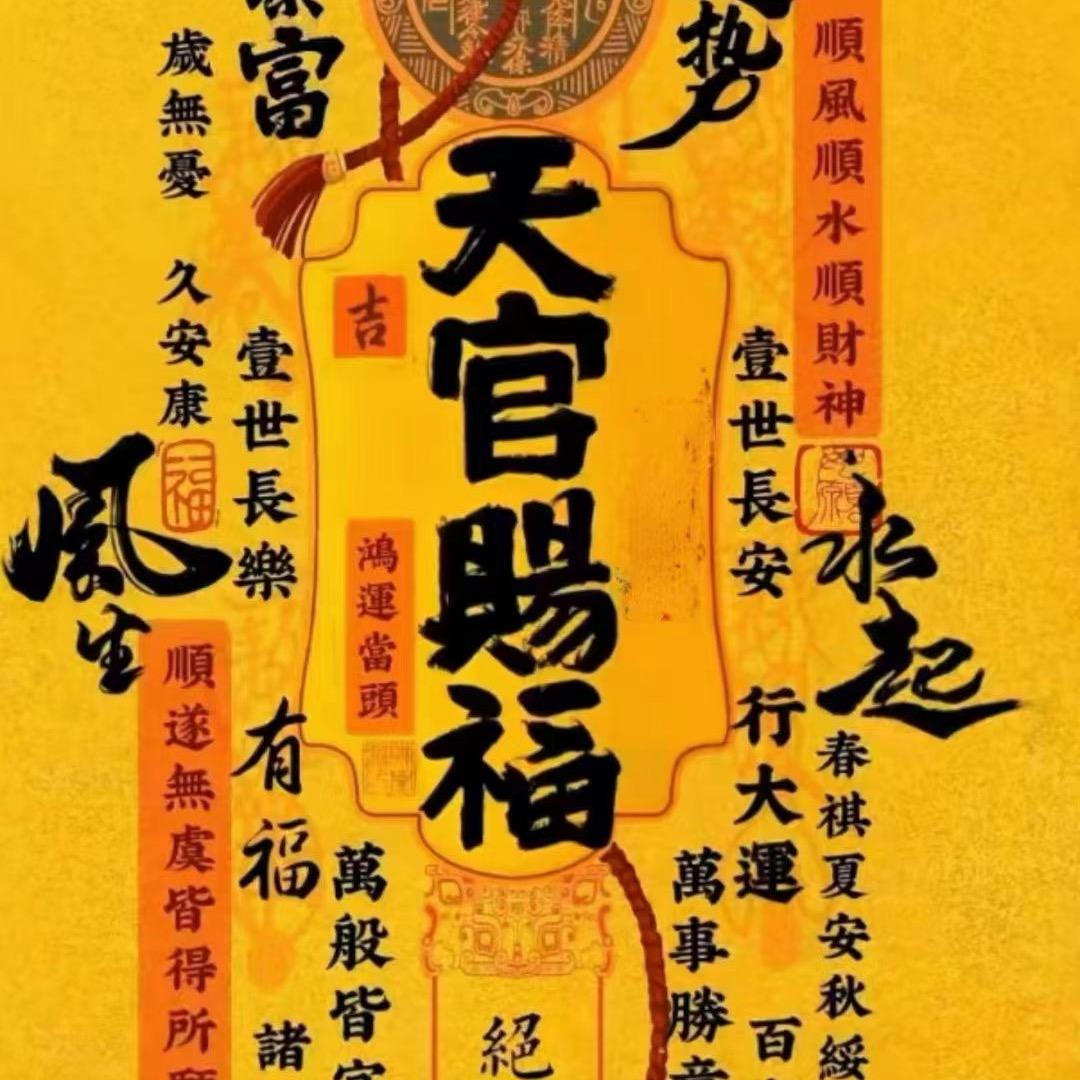 順風順水順財神
勢
富
歲無憂 久安康
天官賜福
吉
鴻運當頭
壹世長安
壹世長樂
風生
水起
福
順遂無虞皆得所
有福
行大運
春祺夏安秋綏
萬事勝
萬般皆
諸
百
絕